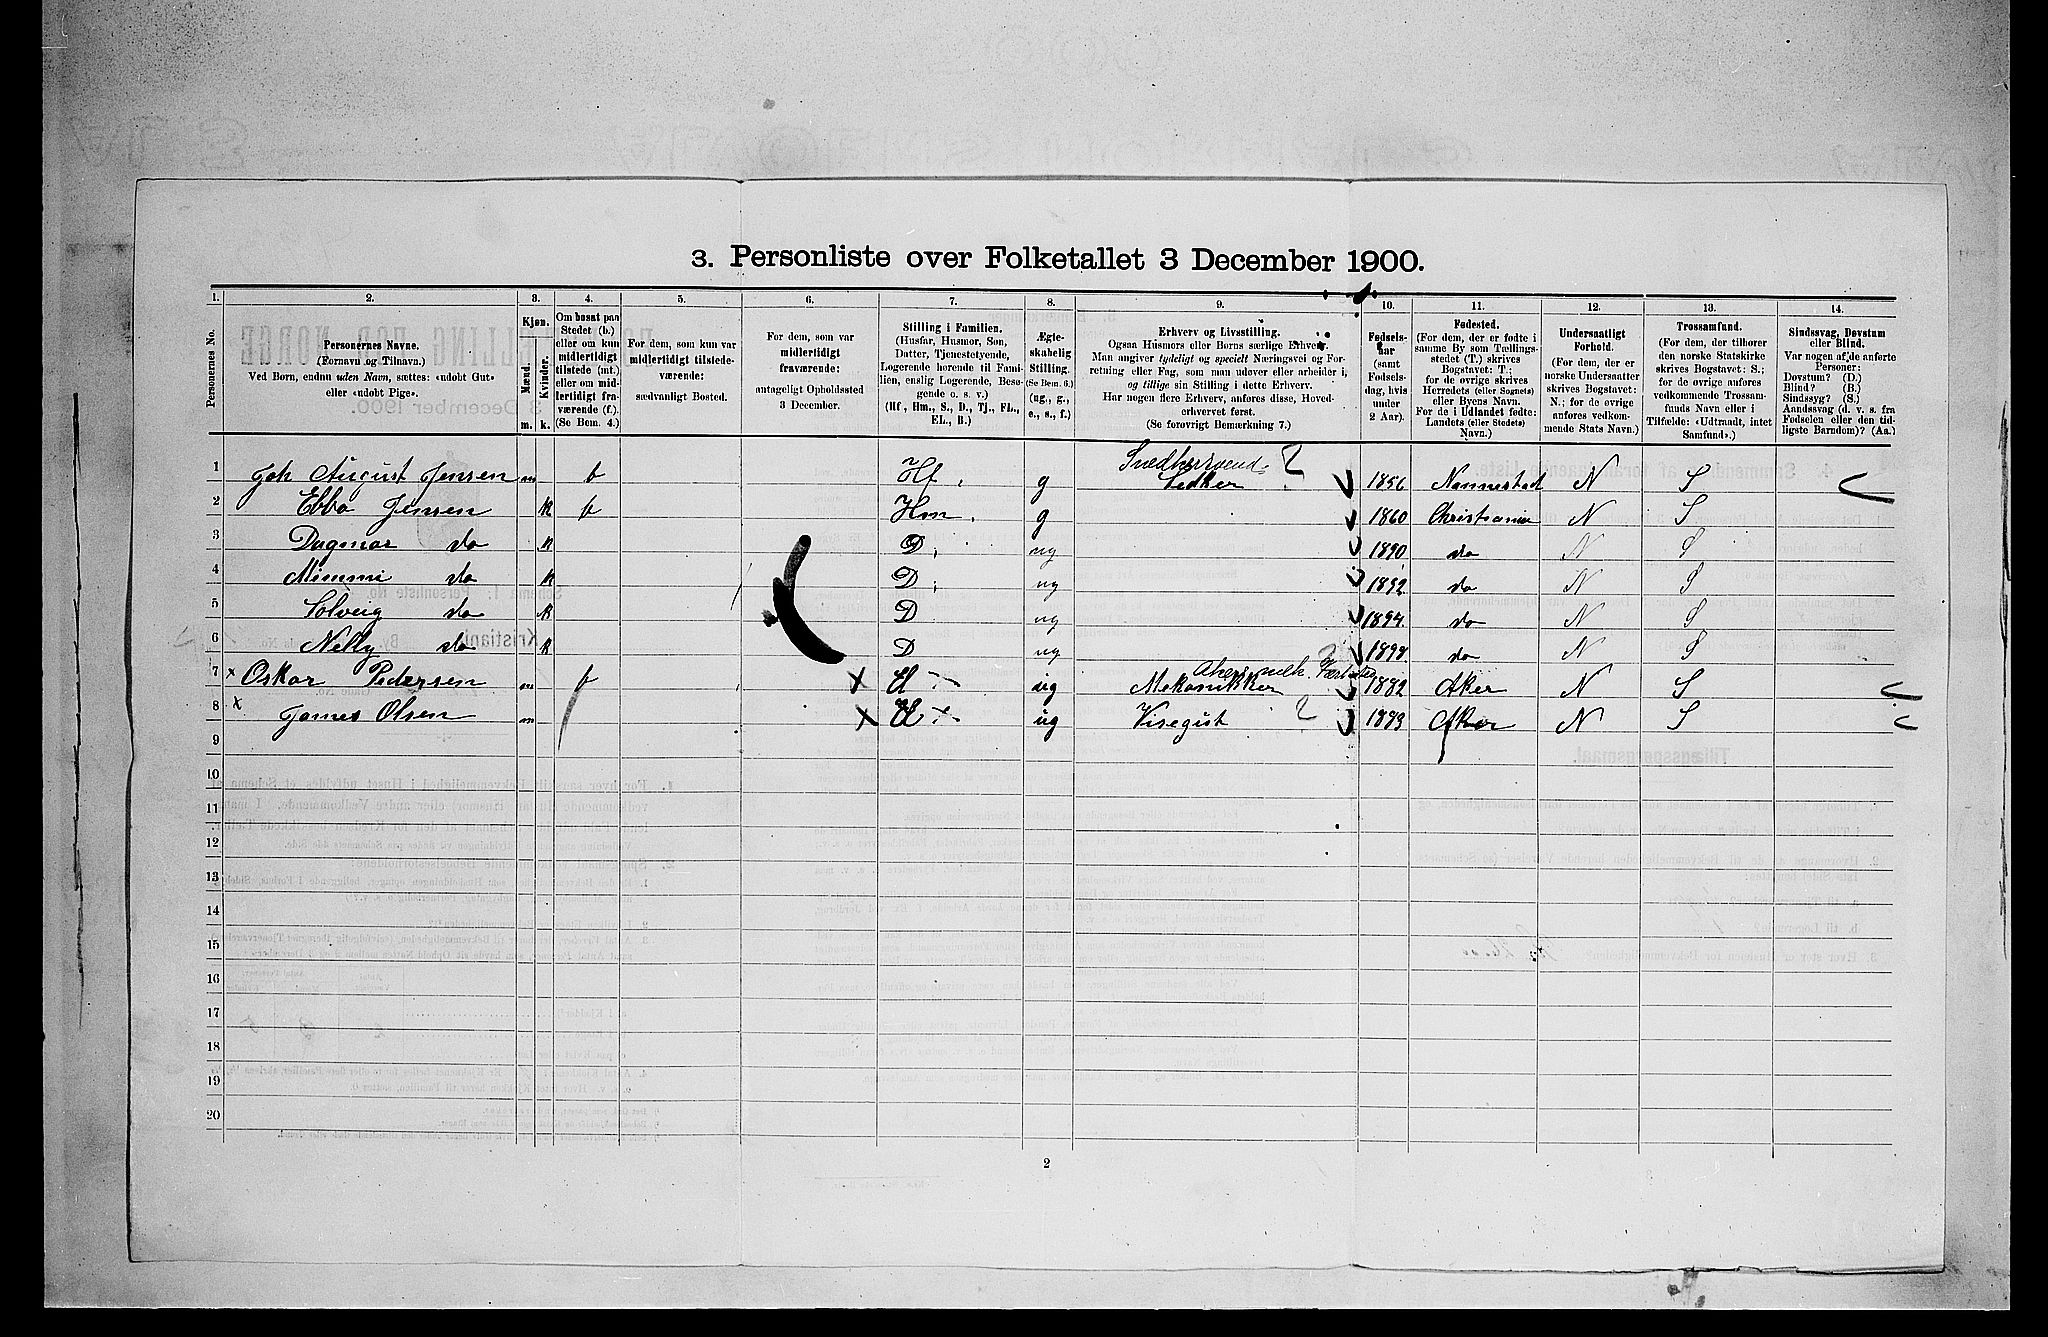 3. Personliste over Folketallet 3 December 1900.
1. 2. 3. 4. 5. 6. 7. 8. 9. 10. 11. 12. 13. 14.
Personernes No.
Personernes Navne.
(Fornavn og Tilnavn.)
Ved Børn, endnu uden Navn, sættes: «udøbt Gut»
eller «udøbt Pige».
Kjøn.
Mænd.
Kvinder.
m. k.
Om bosat paa
Stedet (b.)
eller om kun
midlertidigt
tilstede (mt.)
eller om mid-
lertidigt fra-
værende (f.).
(Se Bem. 4.)
For dem, som kun var
midlertidigt tilstede-
værende:
sædvanligt Bosted.
For dem, som var
midlertidigt
fraværende:
antageligt Opholdssted
3 December.
Stilling i Familien.
(Husfar, Husmor, Søn,
Datter, Tjenestetyende,
Logerende hørende til Fami-
lien, enslig Logerende, Besø-
gende o. s. v.)
(Hf, Hm., S., D., Tj., FL.,
EL., B.)
Ægte-
skabelig
Stilling.
(Se Bem. 6.)
(ug., g.,
e., s., f.)
Erhverv og Livsstilling.
Ogsaa Husmors eller Børns særlige Erhverv.
Man angiver tydeligt og specielt Næringsvei og For-
retning eller Fag, som man udøver eller arbeider i,
og tillige sin Stilling i dette Erhverv.
Har nogen flere Erhverv, anføres disse, Hoved-
erhvervet først.
(Se forøvrigt Bemærkning 7.)
Fødsels-
aar
(samt
Fødsels-
dag, hvis
under
2 Aar).
Fødested.
(For dem, der er fødte i
samme By som Tællings-
stedet (T.) skrives
Bogstavet: T.;
for de øvrige skrives
Herredets (eller Sognets)
eller Byens Navn.
For de i Udlandet fødte:
Landets (eller Stedets)
Navn.)
Undersaatligt
Forhold.
(For dem, der er
norske Undersaatter
skrives Bogstavet:
N.; for de øvrige
anføres vedkom-
mende Stats Navn.)
Trossamfund.
(For dem, der tilhører
den norske Statskirke
skrives Bogstavet: S.;
for de øvrige anføres
vedkommende Trossam-
funds Navn eller i
Tilfælde: «Udtraadt, intet
Samfund».)
Sindssvag, Døvstum
eller Blind.
Var nogen af de anførte
Personer:
Døvstum? (D.)
Blind? (B.)
Sindssyg? (S.)
Aandssvag (d. v. s. fra
Fødselen eller den tid-
ligste Barndom)? (Aa.)
1 Joh August Jensen m b Hf. g ? 1856 Nannestad N S
2 Ebba Jensen k b Hm. g 1860 Christiania N S
3 Dagmar do k D. ug 1890 do N S
4 Mimmi do k D. ug 1892 do N S
5 Solveig do k D ug 1894. do N S
6 Nelly do k D ug 1898. do N S
7 x Oskar Pedersen m b x ug Mekanikker 1882 Aker N S
8 x James Olsen m x ug Visegist ? 1883 Aker N S
9
10
11
12
13
14
15
16
17
18
19
20
2